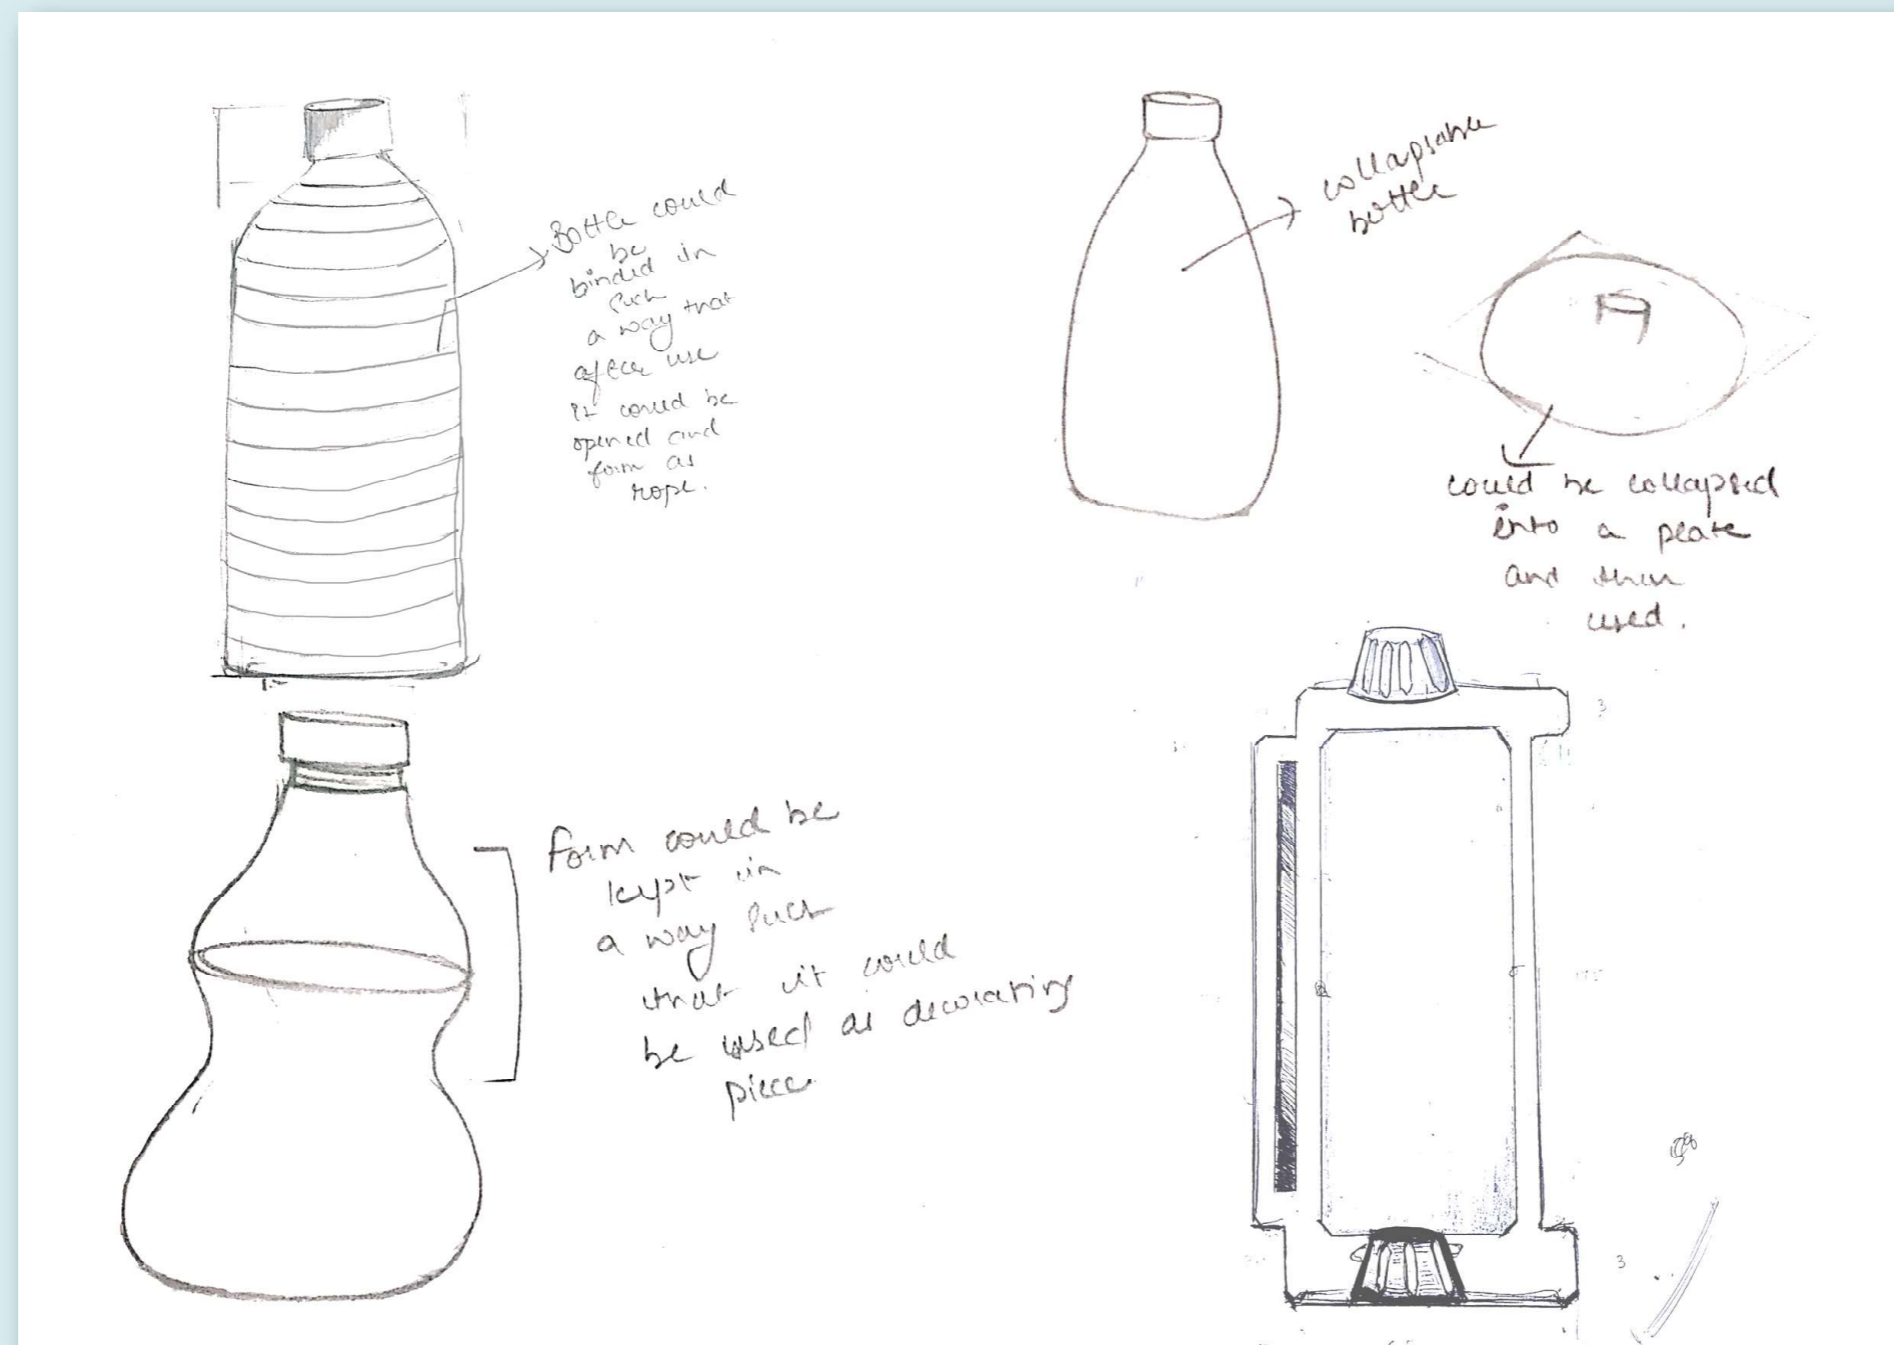 Bottle could
be
binded in
such
a way that
after use
it could be
opened and
form as
rope.
collapsable
bottle
could be collapsed
into a plate
and than
used.
form could be
kept in
a way such
that it could
be used as decorating
piece
3
3